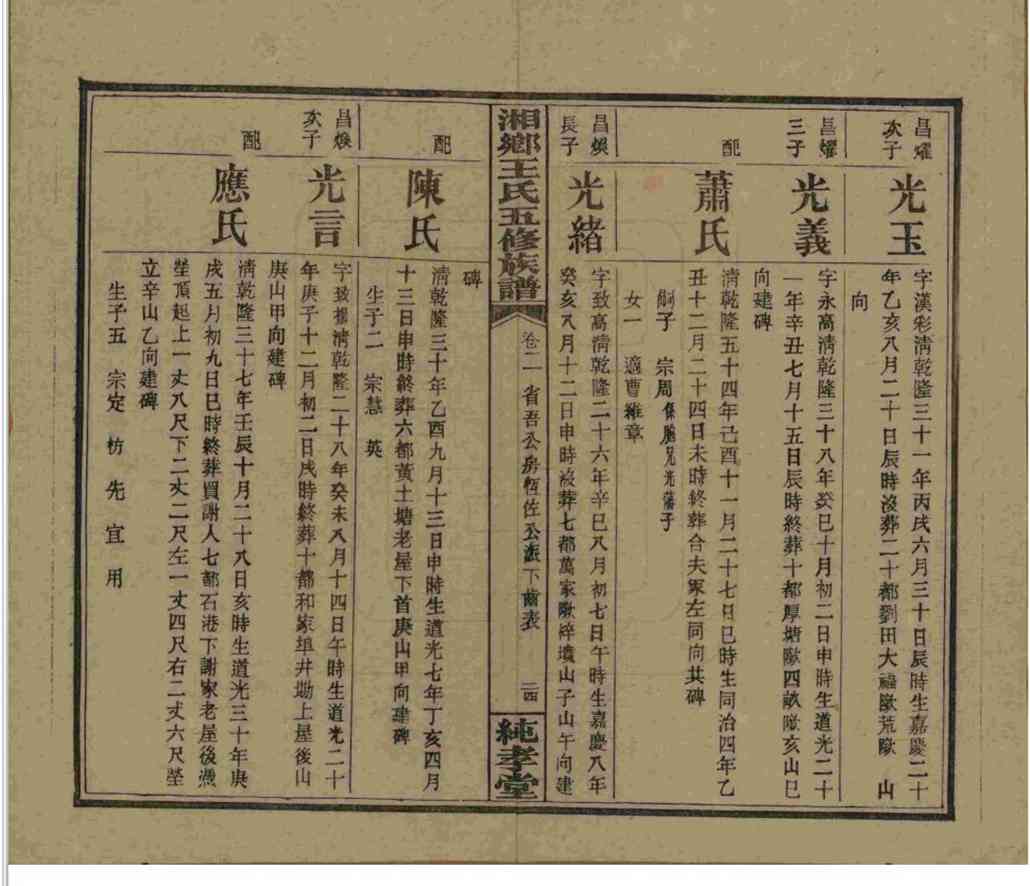 昌燿
次子
光玉
字漢彩淸乾隆三十一年丙戌六月三十日辰時生嘉慶二十
年乙亥八月二十日辰時歿葬二十都劉田大 荒 山
向
昌燿
三子
光義
字永高淸乾隆三十八年癸巳十月初二日申時生道光二十
一年辛丑七月十五日辰時終葬十都厚塘 四畝 亥山巳
向建碑
配
蕭氏
淸乾隆五十四年己酉十一月二十七日巳時生同治四年乙
丑十二月二十四日未時終葬合夫冢左同向共碑
嗣子 宗周 係胞兄光藩子
女一 適曹維章
昌煥
長子
光緒
字致高淸乾隆二十六年辛巳八月初七日午時生嘉慶八年
癸亥八月十二日申時歿葬七都萬家 墳山子山午向建
湘鄉王氏五修族譜
卷二 省吾公房恆佐公派下齒表 二四
純孝堂
碑
配
陳氏
淸乾隆三十年乙酉九月十三日申時生道光七年丁亥四月
十三日申時終葬六都黃土塘老屋下首庚山甲向建碑
生子二 宗慧 英
昌煥
次子
光言
字致 淸乾隆二十八年癸未八月十四日午時生道光二十
年庚子十二月初二日戌時終葬十都和家 井塝上屋後山
庚山甲向建碑
配
應氏
淸乾隆三十七年壬辰十月二十八日亥時生道光三十年庚
戌五月初九日巳時終葬買謝人七都石港下謝家老屋後憑
塋頂起上一丈八尺下二丈二尺左一丈四尺右二丈六尺塋
立辛山乙向建碑
生子五 宗定 枋 先 宜 用